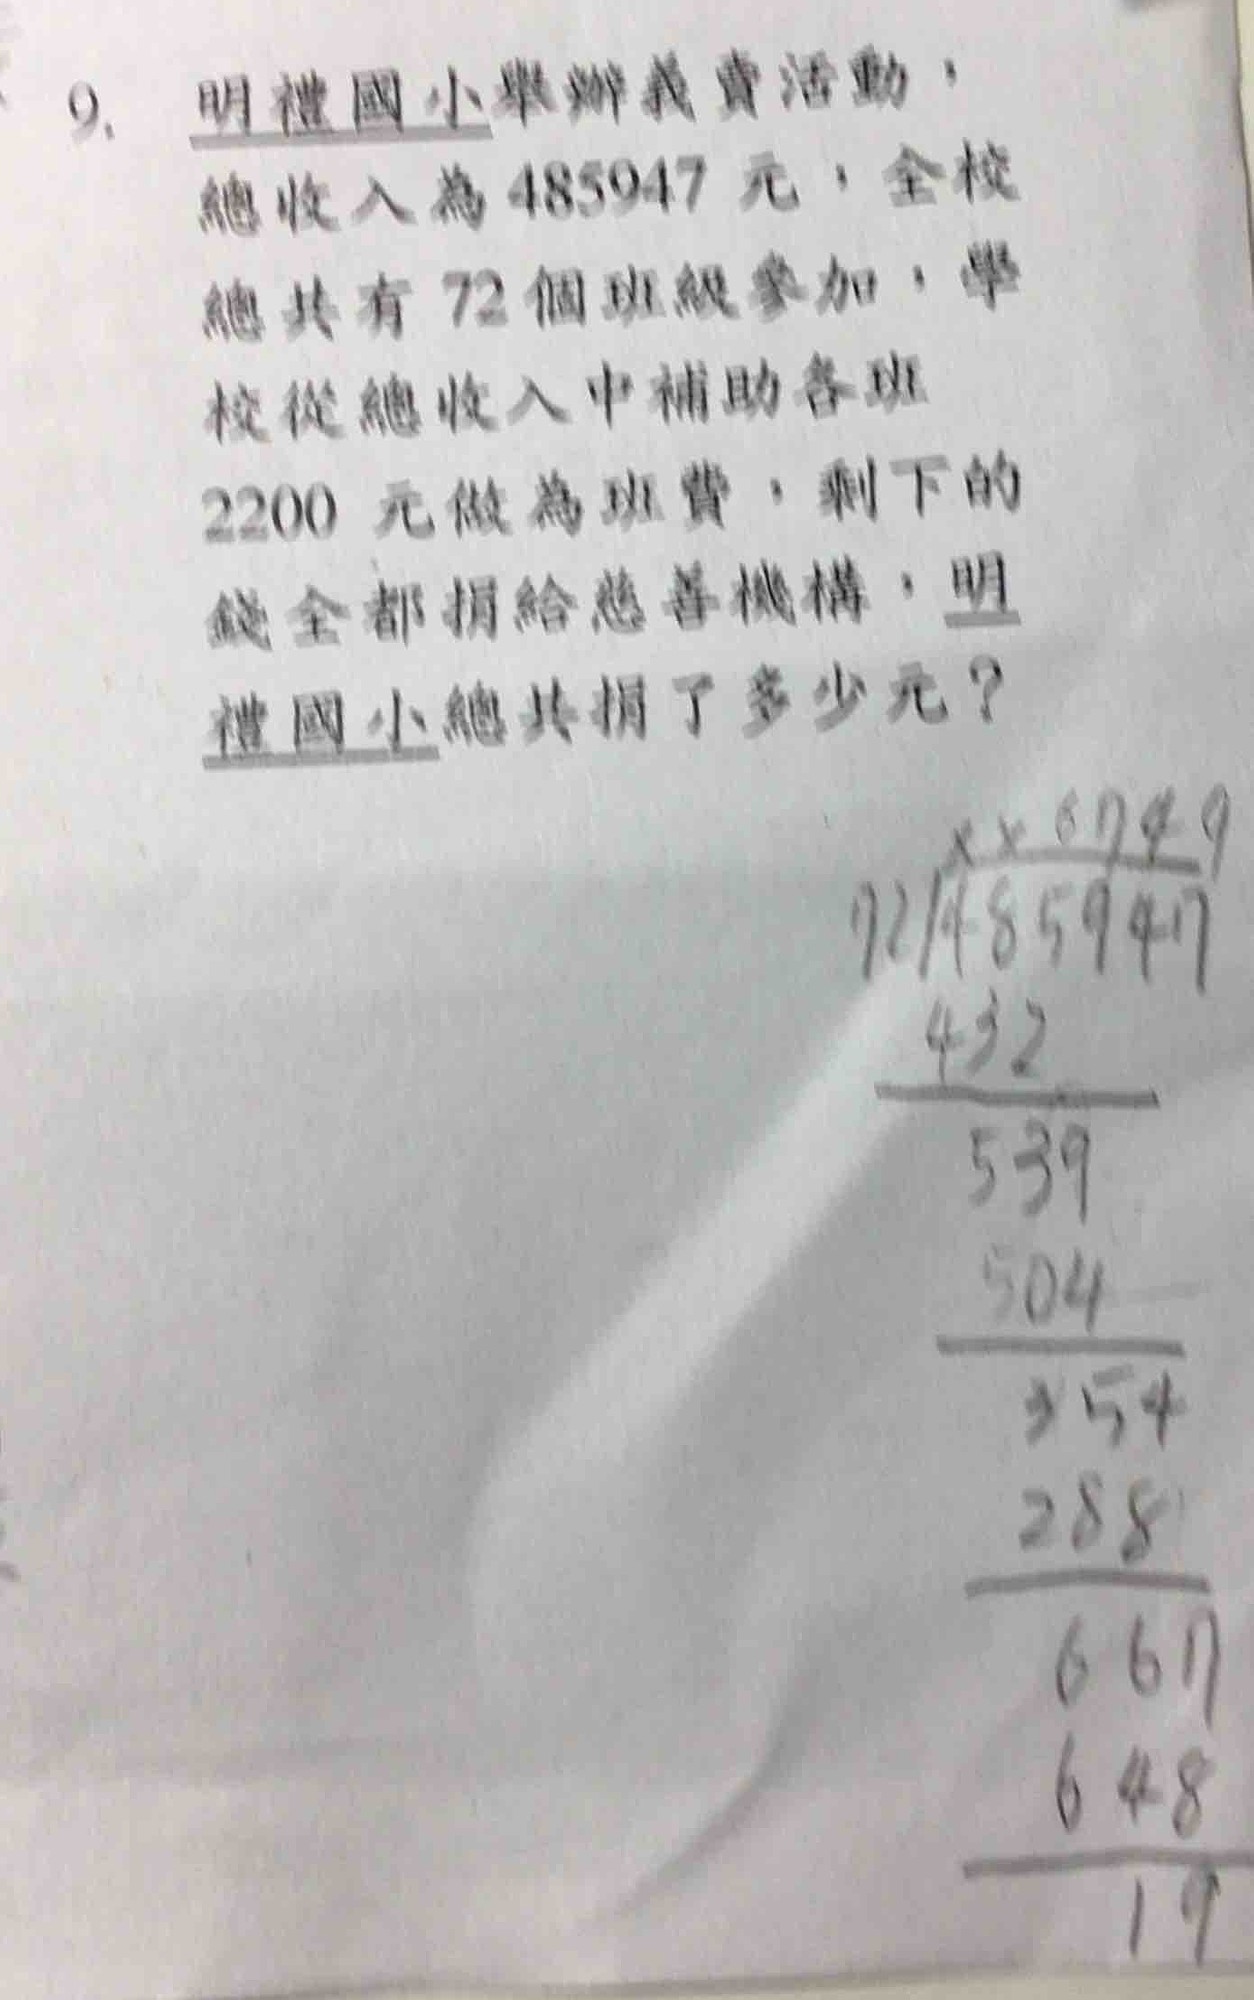 9. 明禮國小舉辦義賣活動，
總收入為 485947 元，全校
總共有 72 個班級參加，學
校從總收入中補助各班
2200 元做為班費，剩下的
錢全都捐給慈善機構，明
禮國小總共捐了多少元？
x x 6 7 4 9
72/485947
432
539
504
354
288
667
648
19